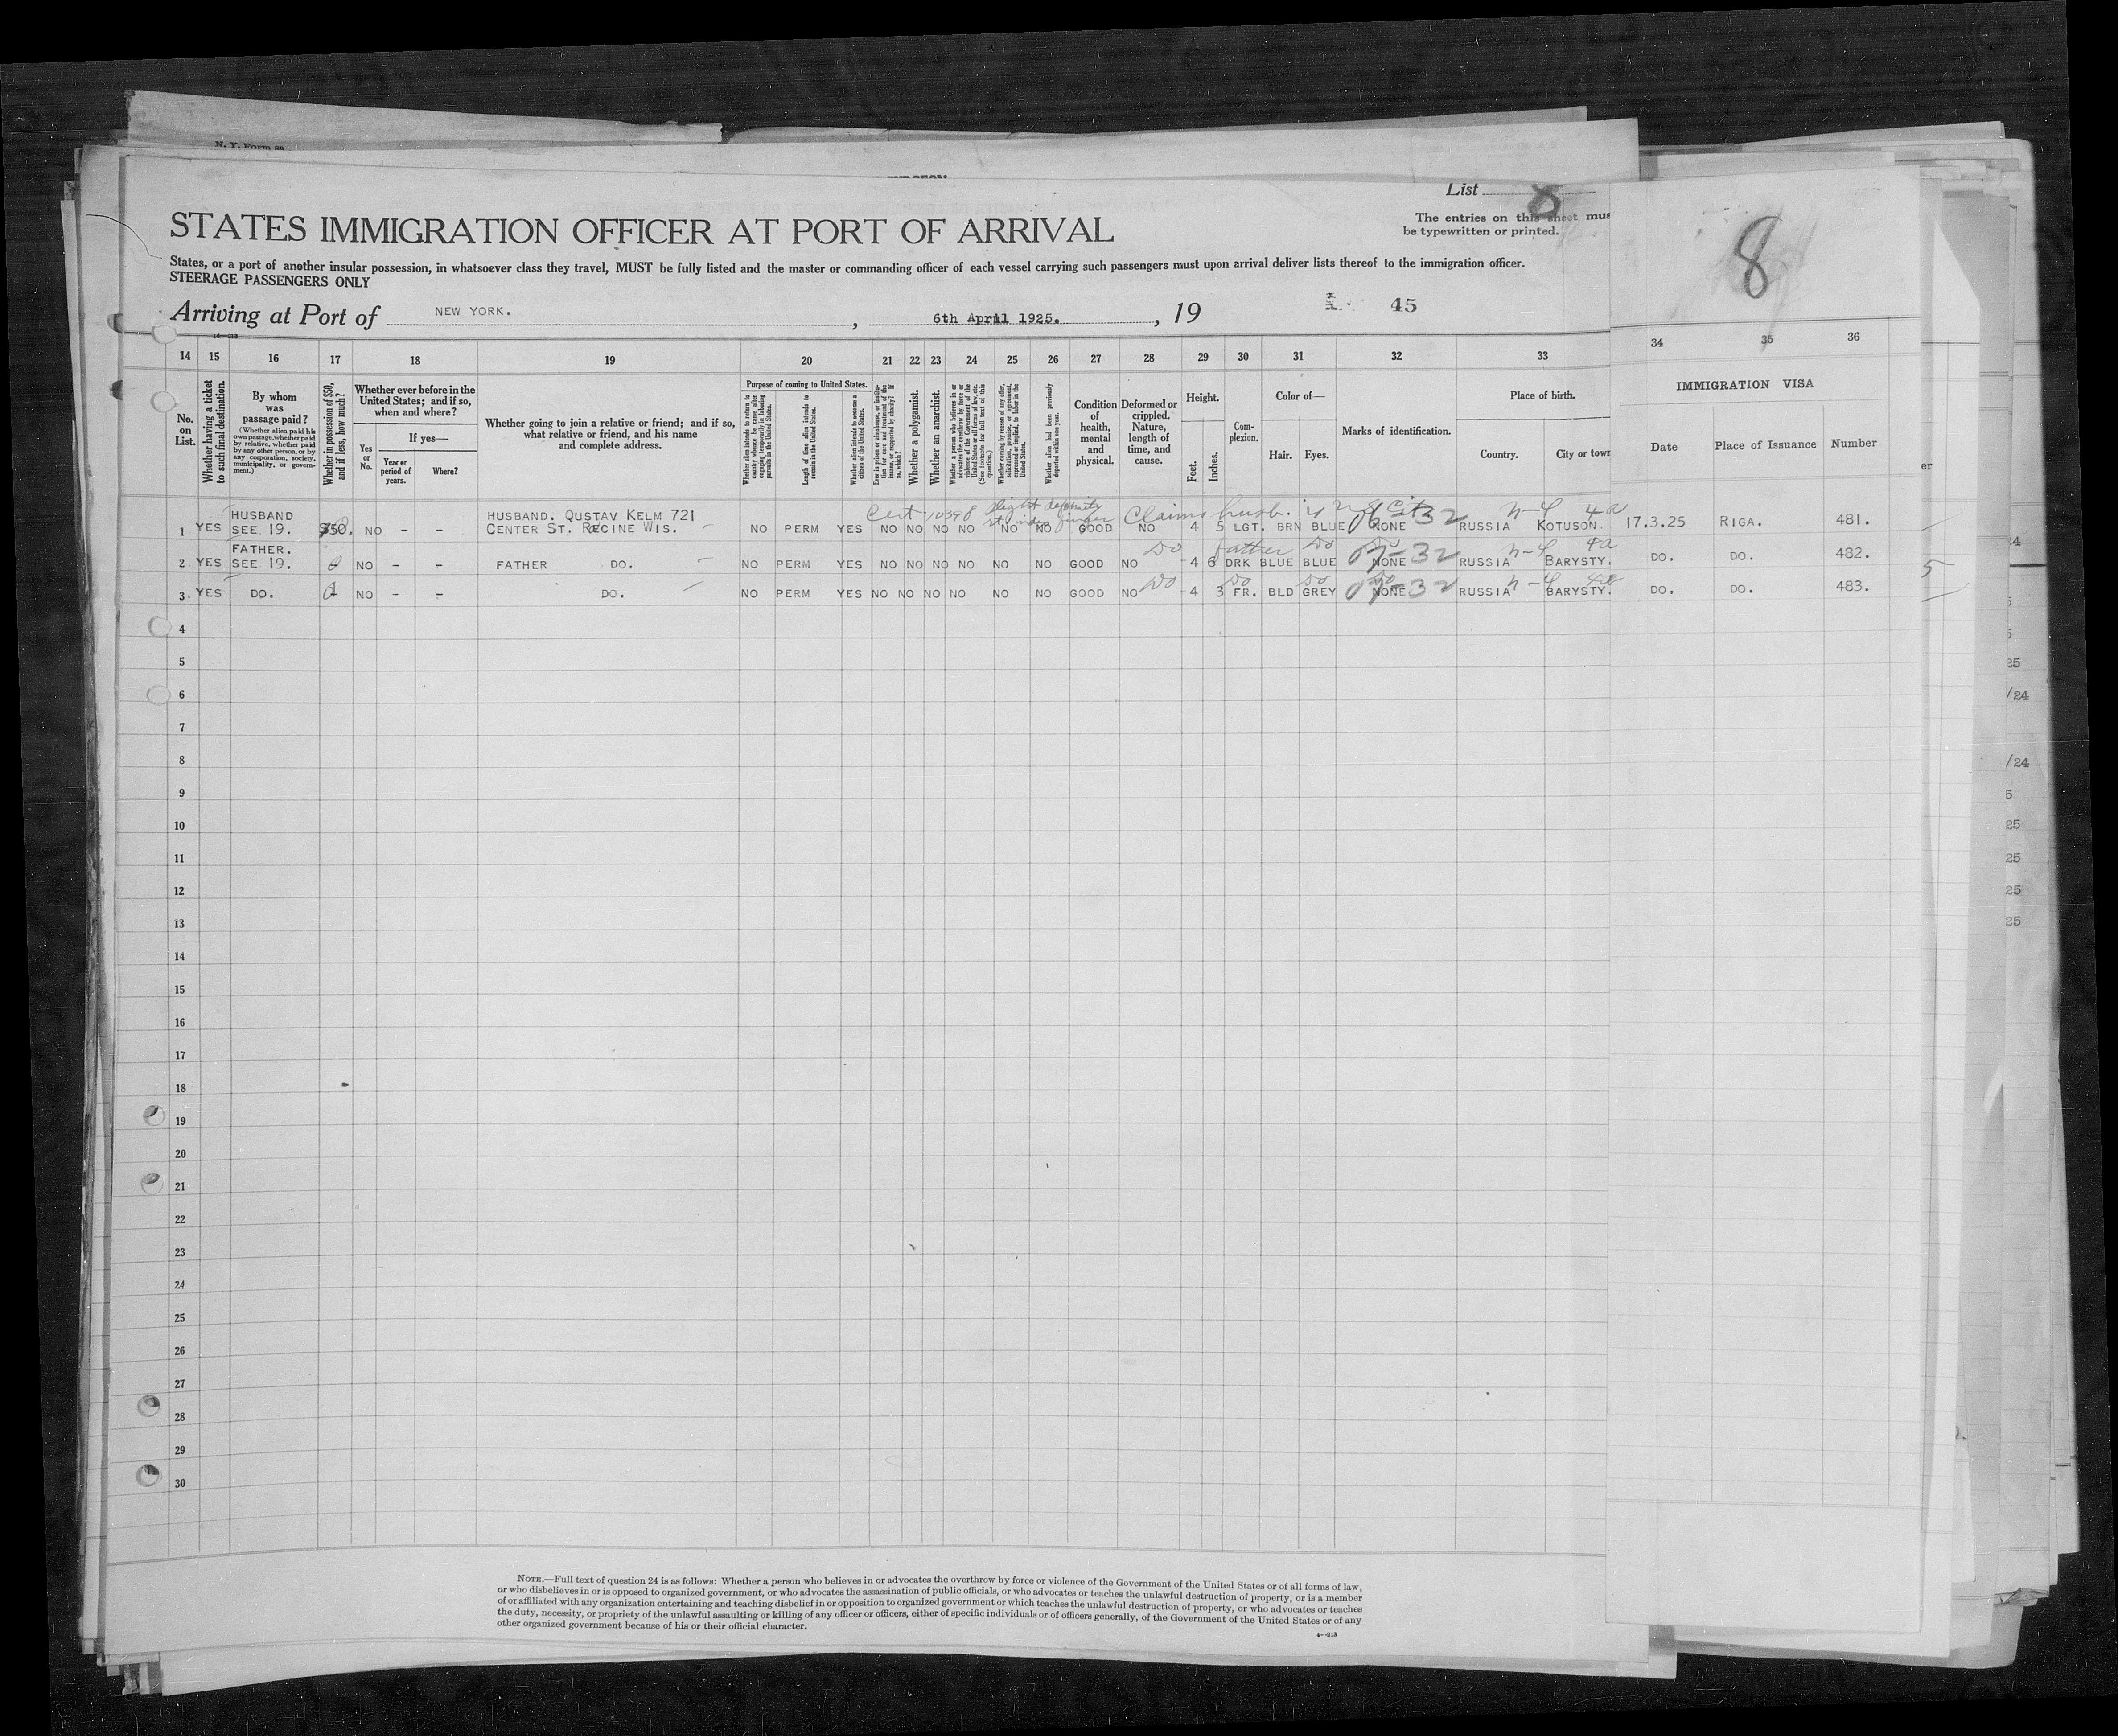 N. Y. Form 89
List 8
The entries on this sheet mus
be typewritten or printed.
8
STATES IMMIGRATION OFFICER AT PORT OF ARRIVAL
States, or a port of another insular possession, in whatsoever class they travel, MUST be fully listed and the master or commanding officer of each vessel carrying such passengers must upon arrival deliver lists thereof to the immigration officer.
STEERAGE PASSENGERS ONLY
Arriving at Port of NEW YORK. , 6th April 1925. , 19 45
14 15 16 17 18 19 20 21 22 23 24 25 26 27 28 29 30 31 32 33 34 35 36
No. on List.
Whether having a ticket to such final destination.
By whom was passage paid?
(Whether alien paid his own passage, whether paid by relative, whether paid by any other person, or by any corporation, society, municipality, or government.)
Whether in possession of $50, and if less, how much?
Whether ever before in the United States; and if so, when and where?
Yes or No.
If yes—
Year or period of years.
Where?
Whether going to join a relative or friend; and if so, what relative or friend, and his name and complete address.
Purpose of coming to United States.
Whether alien intends to return to country whence he came after engaging temporarily in laboring pursuits in the United States.
Length of time alien intends to remain in the United States.
Whether alien intends to become a citizen of the United States.
Ever in prison or almshouse, or institution for care and treatment of the insane, or supported by charity? If so, which?
Whether a polygamist.
Whether an anarchist.
Whether a person who believes in or advocates the overthrow by force or violence of the Government of the United States or all forms of law, etc. (See footnote for full text of this question.)
Whether coming by reason of any offer, solicitation, promise, or agreement, expressed or implied, to labor in the United States.
Whether alien had been previously deported within one year.
Condition of health, mental and physical.
Deformed or crippled. Nature, length of time, and cause.
Height.
Feet.
Inches.
Complexion.
Color of—
Hair. Eyes.
Marks of identification.
Place of birth.
Country. City or town
IMMIGRATION VISA
Date Place of Issuance Number
Cert 10398 slight deformity index finger Claims husb. is
HUSBAND HUSBAND. QUSTAV KELM 721
1 YES SEE 19. $50. NO – – CENTER ST. RECINE WIS. NO PERM YES NO NO NO NO NO NO GOOD NO 4 5 LGT. BRN BLUE NONE RUSSIA KOTUSON. 17.3.25 RIGA. 481.
FATHER. Do father Do
2. YES SEE 19. 0 NO – – FATHER DO. NO PERM YES NO NO NO NO NO NO GOOD NO 4 6 DRK BLUE BLUE NONE RUSSIA BARYSTY. DO. DO. 482.
3. YES DO. NO – – DO. NO PERM YES NO NO NO NO NO NO GOOD NO Do 4 3 FR. BLD GREY NONE RUSSIA BARYSTY. DO. DO. 483.
4
5
6
7
8
9
10
11
12
13
14
15
16
17
18
19
20
21
22
23
24
25
26
27
28
29
30
NOTE.—Full text of question 24 is as follows: Whether a person who believes in or advocates the overthrow by force or violence of the Government of the United States or of all forms of law,
or who disbelieves in or is opposed to organized government, or who advocates the assassination of public officials, or who advocates or teaches the unlawful destruction of property, or is a member
of or affiliated with any organization entertaining and teaching disbelief in or opposition to organized government or which teaches the unlawful destruction of property, or who advocates or teaches
the duty, necessity, or propriety of the unlawful assaulting or killing of any officer or officers, either of specific individuals or of officers generally, of the Government of the United States or of any
other organized government because of his or their official character.